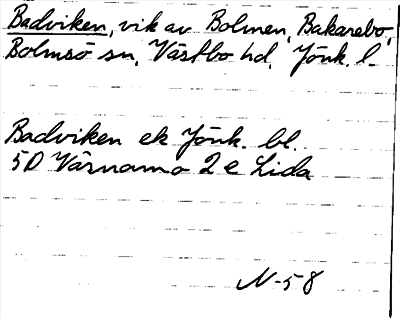 Badviken, vik av Bolmen, Bakarebo,
Bolmsö sn, Västbo hd, Jönk. l.
Badviken ek Jönk. bl.
5D Värnamo 2 e Lida
N-58